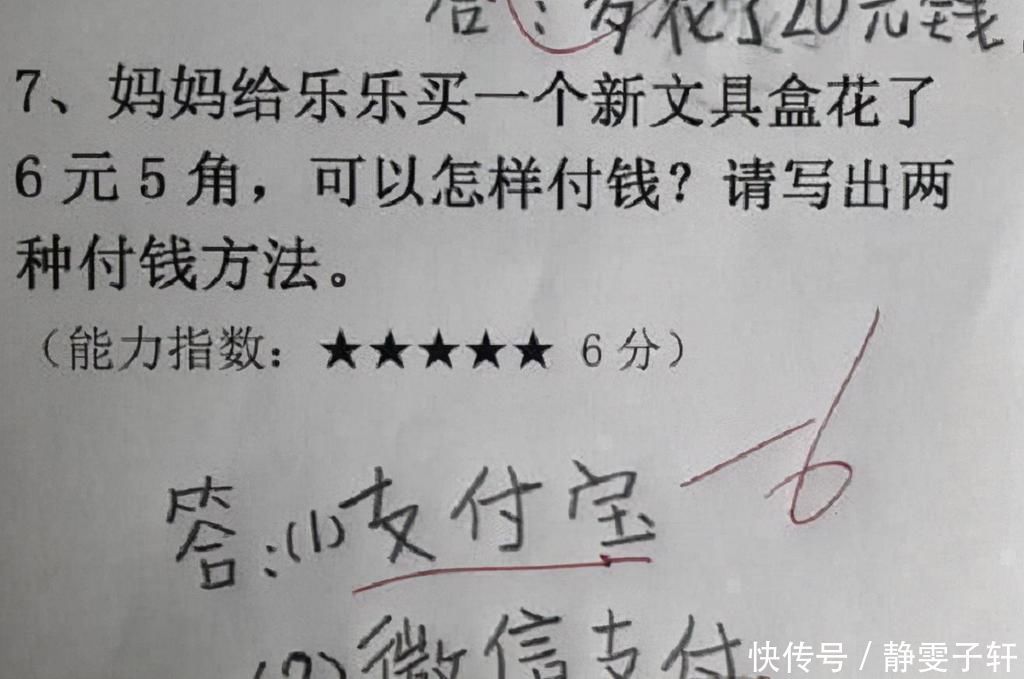 答：爹花了20元钱
7、妈妈给乐乐买一个新文具盒花了
6元5角，可以怎样付钱？请写出两
种付钱方法。
（能力指数：★★★★★ 6分）
-6
答：(1)支付宝
(2)微信支付
快传号/静雯子轩